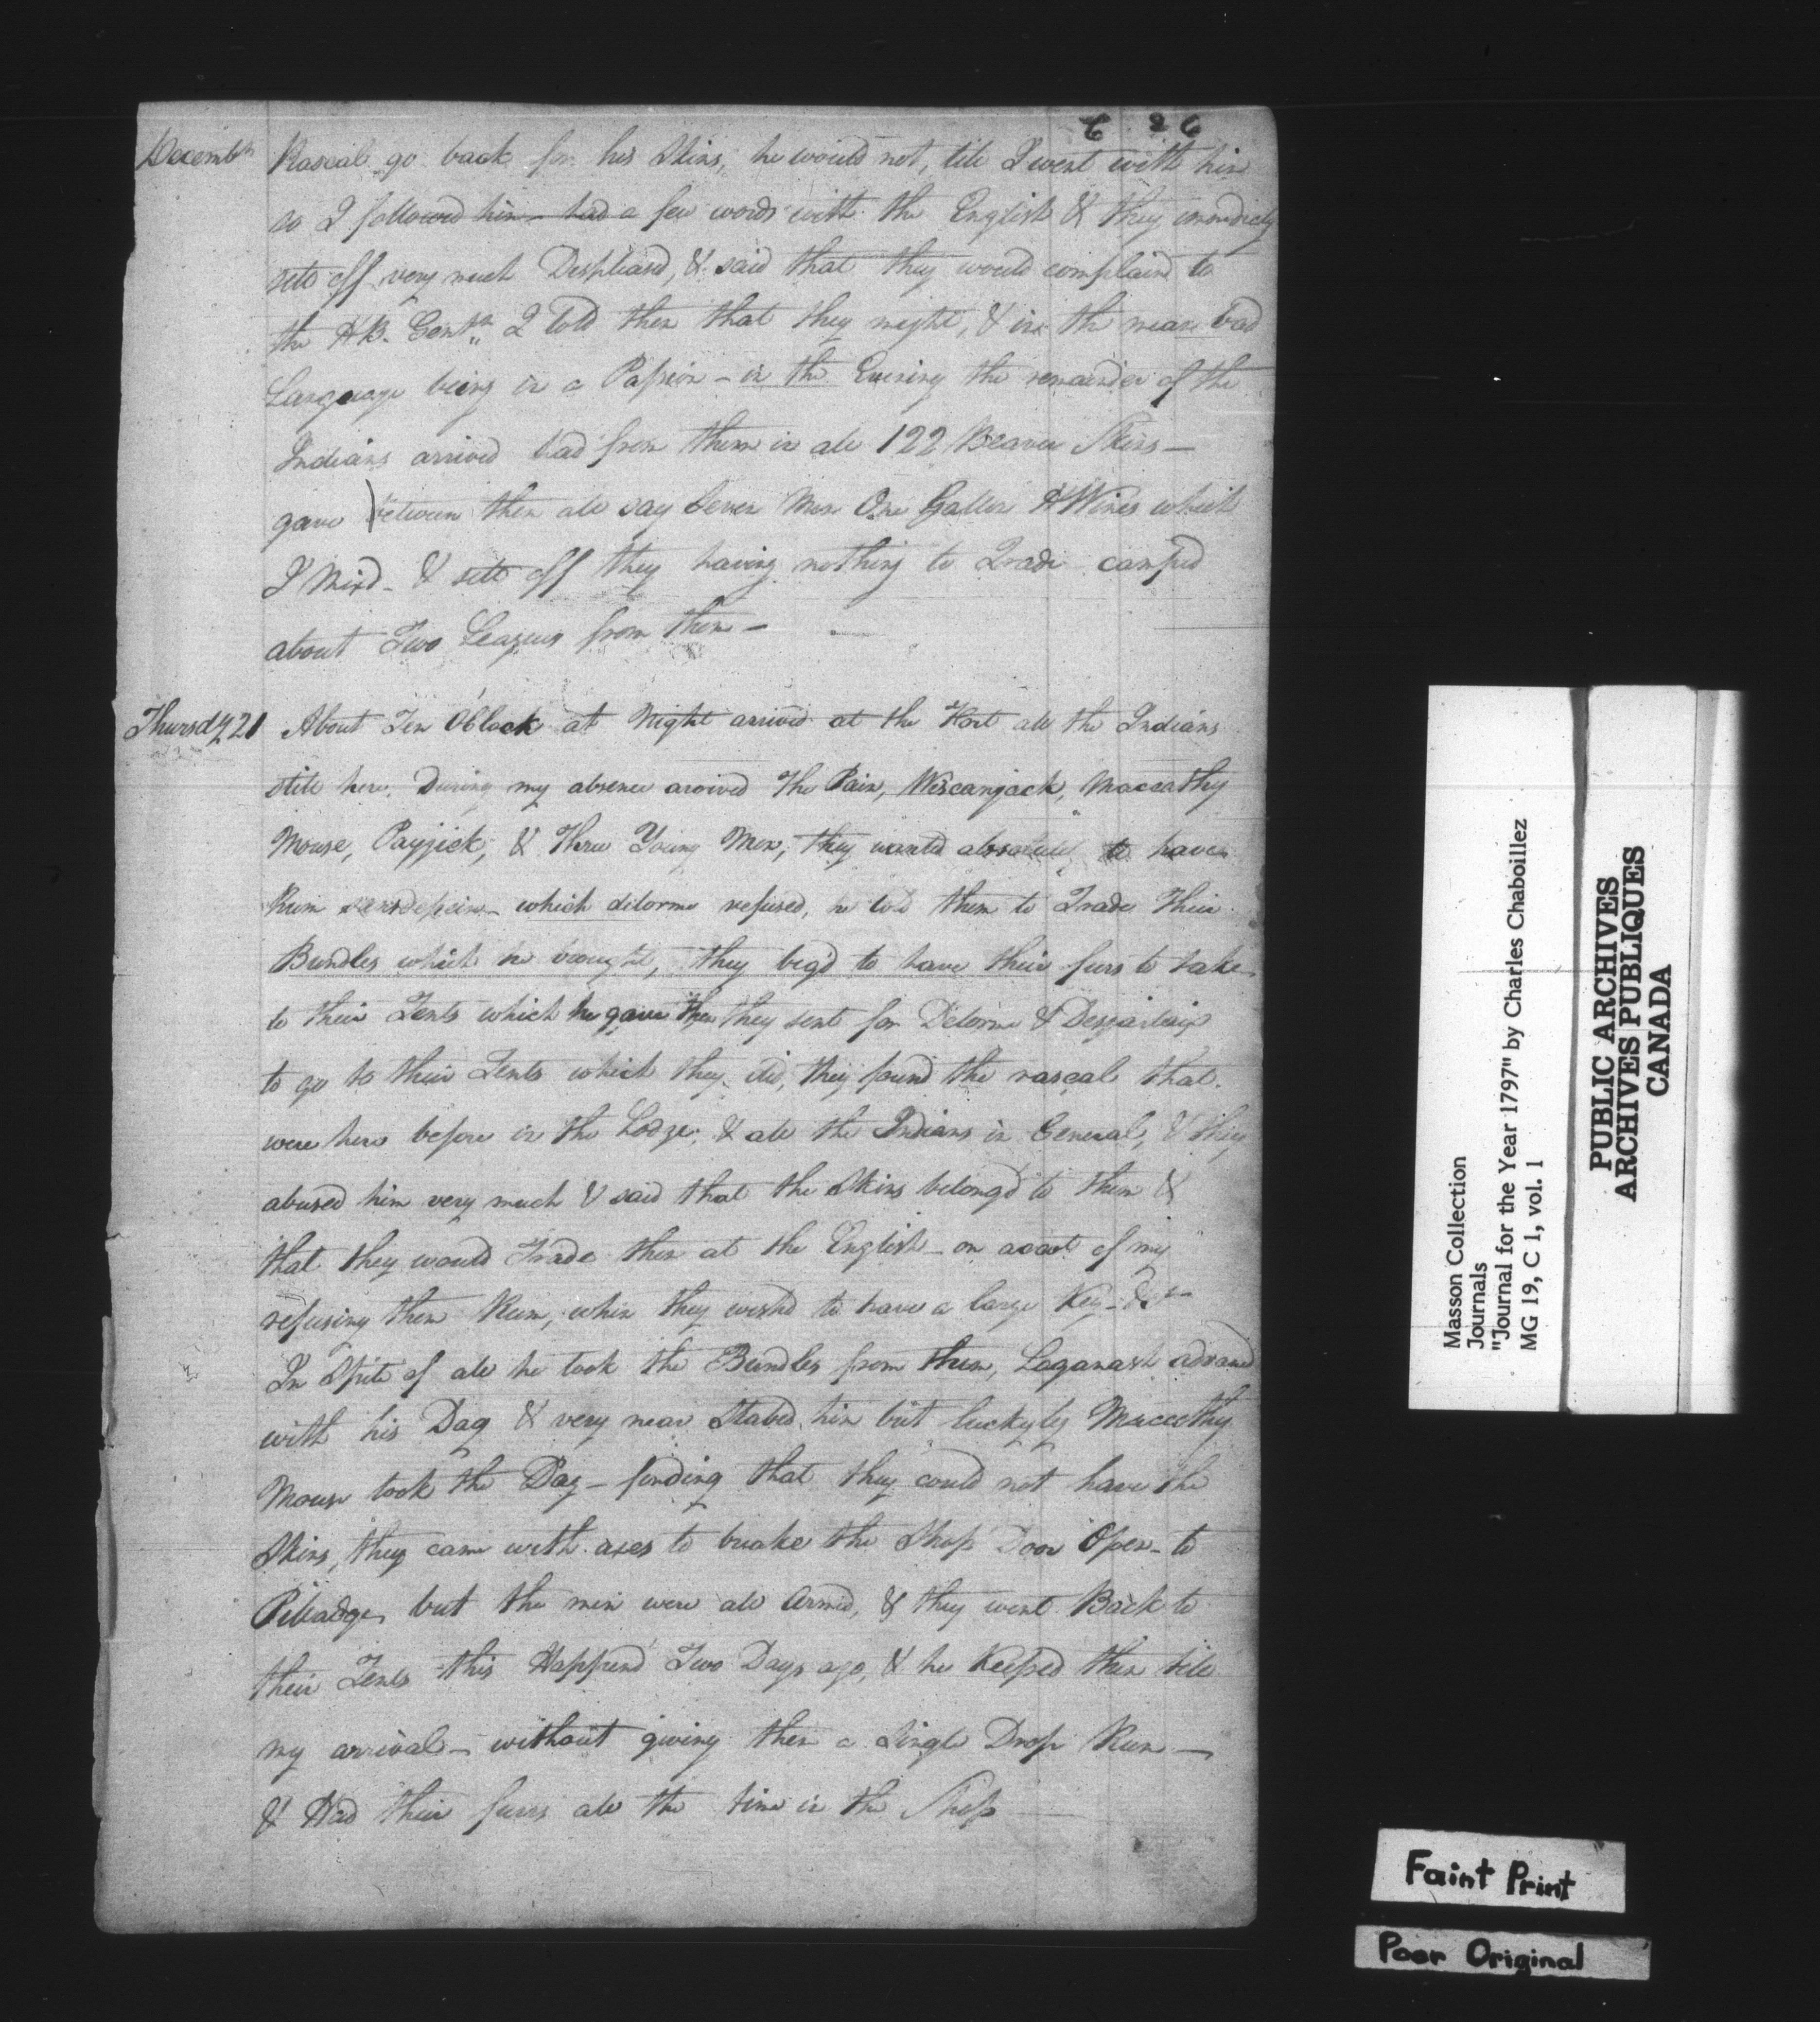 6 26
Decembr Rascal go back for his Skins, he would not, till I went with him
so I followed him - had a few words with the English & they immediately
sets off very much Displeasd, & said that they would complaind to
the HB. Gentn I told them that they might, & in the mean bad
Language being in a Passion - in the Evening the remainder of the
Indians arrived had from them in all 122 Beaver Skins -
gave between them all say Seven Men One Gallon HWines which
I Mixd - & sett off they having nothing to Trade camped
about Two Leagues from them -
Thursdy 21 About Ten O'Clock at Night arrived at the Fort all the Indians
still here. During my absence arrived The Pain, Wiscanjack, Maccathy
Mouse, Payjick, & Three Young Men, they wanted absolutely to have
Rum which delorme refused, he told them to Trade Their
Bundles which he brought, they beg'd to have their furs to take
to their Tents which he gave them they sent for Delorme & Desjarlaix
to go to their Tents which they did, they found the rascal that
were here before in the Lodge, & all the Indians in General, & they
abused him very much & said that the Skins belong'd to them &
that they would Trade them at the English - on accot of my
refusing them Rum, when they wishd to have a large Keg - &c
In Spite of all he took the Bundles from them, Laganash advanced
with his Dag & very near Stabed him but luckyly Maccathy
Mouse took the Dag - finding that they could not have the
Skins, they came with axes to brake the Shop Door Open - to
Pilladge but the men were all Armed, & they went Back to
their Tents this Happend Two Days ago, & he Keeped them till
my arrival - without giving them a Single Drop Rum -
& Had their furrs all the time in the Shop
Masson Collection
Journals
"Journal for the Year 1797" by Charles Chaboillez
MG 19, C 1, vol. 1
PUBLIC ARCHIVES
ARCHIVES PUBLIQUES
CANADA
Faint Print
Poor Original